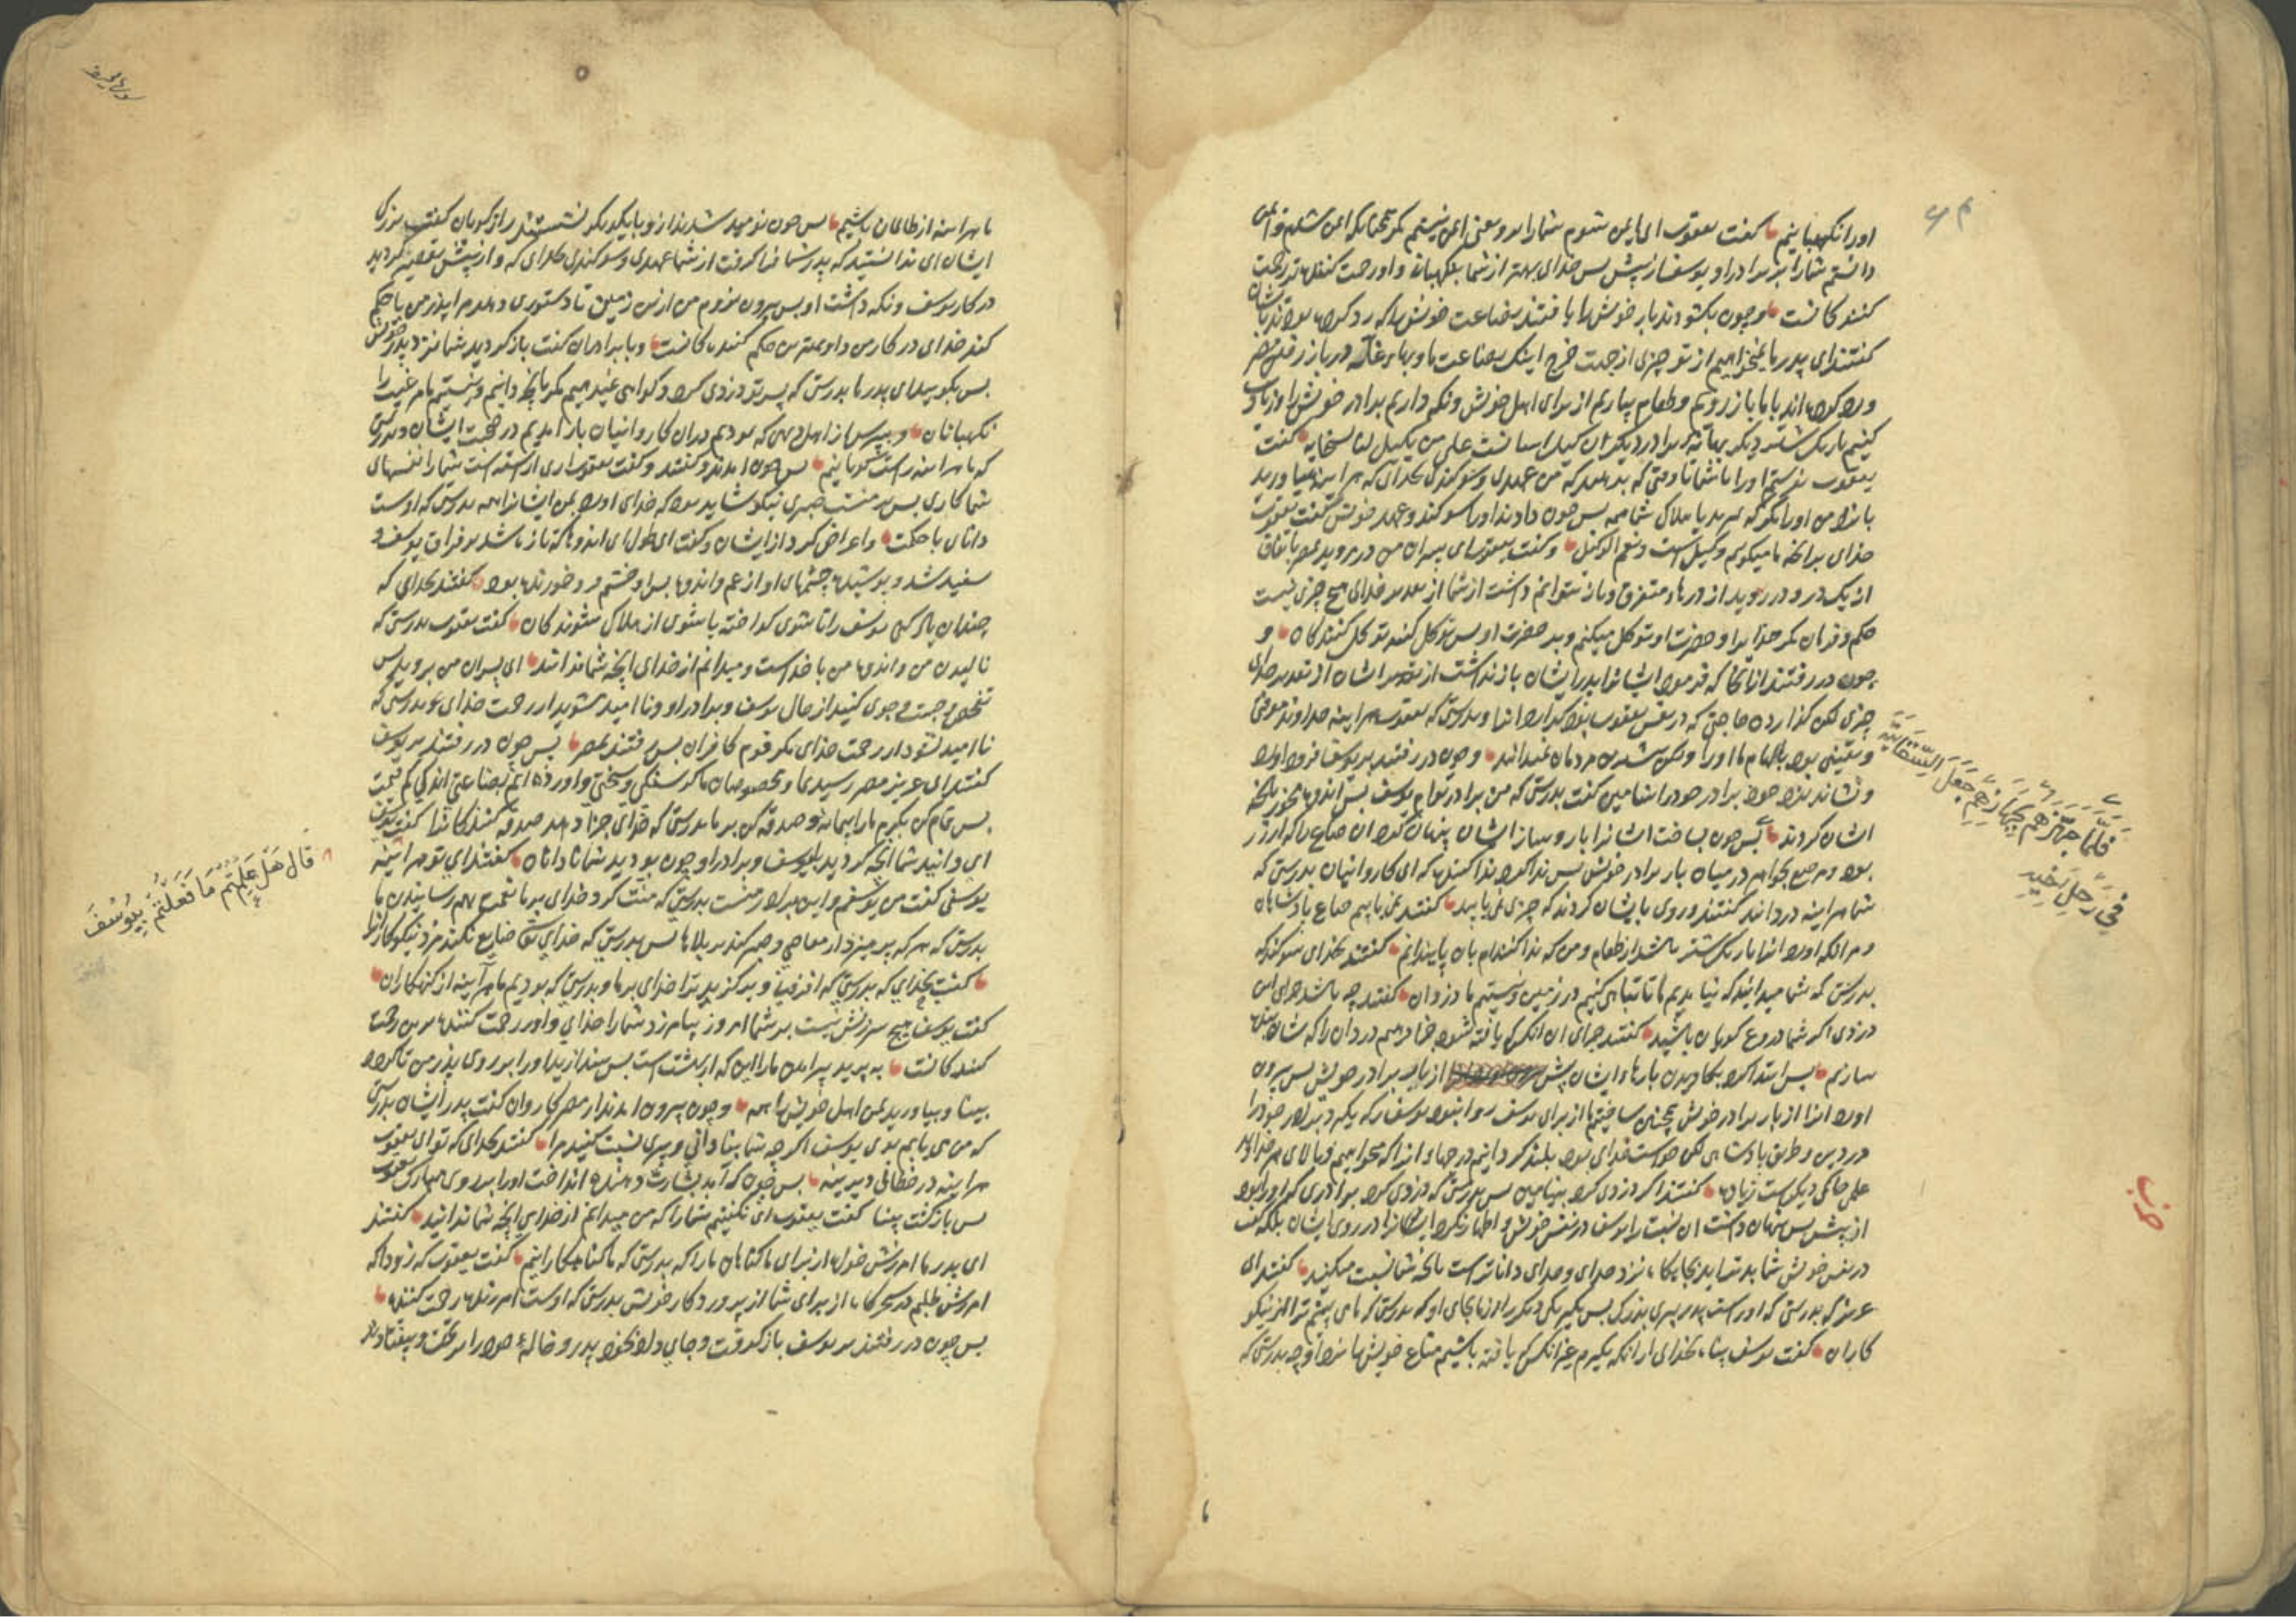 اورا نگهبانیم کفت یعقوب ای ایمن شوم شمارا برو یعنی ایمن نیستم مکر همچنانکه ایمن شدم و امین
دانستم شمارا بر برادر او یوسف از پیش پس خدای بهتر از شما بنکهبانی و اورحمت کننده تر رحمت
کنند کانست وچون بکشودند بار خویش را یافتند بضاعت خویش را که رد کرده بودند بایشان
کفتند ای پدر ما نمیخواهیم از تو چیزی از جهت خرج اینک بضاعت ما و بهاء غله در باز
رد کرده اند با ما باز رویم وطعام بیاریم از برای اهل خویش ونکه داریم برادر خویش را وزیاده
کنیم بار یک شتر دیکر کفت
یعقوب نفرستم اورا باشما تا وقتی که بدهید که من عهدی و سوکندی بخدای که هراینه بیاورید
باز من اورا مکر که هلاک شما همه پس چون دادند اورا سوکند وعهد خویش کفت یعقوب
خدای برانچه ما میکویم وکیل است ونعم الوکیل وکفت یعقوب ای پسران من در مروید بمصر باتفاق
از یک در و در روید از درهاء متفرق وباز نتوانم داشت از شما از خدای هیچ چیزی نیست
حکم وفرمان مکر خدایرا وحضرت او توکل میکنم وبر حضرت او پس توکل کنند توکل کنندکان و
چون در رفتند از انجا که فرموده ایشانرا پدر ایشان باز نداشت از ایشان از تقدیر خدای
چیزی لکن کذاردن حاجتی که در نفس یعقوب بود کذارد انرا وبدرستی که یعقوب هراینه خداوند
ویقینی بود بالهام ما اورا ولکن بیشترین مردمان نمیدانند وچون در رفتند بر یوسف فرود اورد
ونشاند نزد خود برادر خودرا بنیامین کفت بدرستی که من برادر توام یوسف پس اندوه مخور بانچه
ایشان کردند پس چون بساخت ایشانرا بار وساز ایشان پنهان کرد ان صاع را که از زر
بود در میان بار برادر خویش پس ندا کرد ندا کننده که ای کاروانیان بدرستی که
شما هراینه دزدانید کفتند وروی بایشان کردند که چه چیزی نمی یابید کفتند نمی یابیم صاع پادشاه
ومر انکه اورد انرا بار یک شتر باشد از طعام ومن که ندا کننده ام بان پایندانم کفتند بخدای سوکند که
بدرستی که شما میدانید که نیامدیم ما تا تباهی کنیم در زمین ونیستیم ما دزدان کفتند چه باشد جزای این
دزدی اکر شما دروغ کویان باشید کفتند جزای ان انکس که یافته شود جزا دهیم دزدان را که
سازیم پس ابتدا کرد بکاویدن بارهاء ایشان پیش از بار برادر خویش پس بیرون
اورد انرا از بار برادر خویش همچنین ساختیم ما از برای یوسف روا نبود یوسف را که بکیرد برادر خودرا
در دین وطریق پادشاه لکن خواست خدای بود بلند کردانیم درجهاء انرا که میخواهیم وبالای هر خداوند
علمی حاکمی دیکرست زیاده کفتند اکر دزدی کرد بنیامین پس بدرستی که دزدی کرد برادری که اورا بود
از پیش پس پنهان داشت ان نسبت را یوسف در نفس خویش و اظهار نکرد ایشانرا در روی ایشان بلکه کفت
در نفس خویش شما بدتراید بجایکاه نزد خدای وخدای داناترست بانچه شما نسبت میکنید کفتند ای
عزیز که بدرستی که اوراست پدر پیری بزرک پس بکیر یکی دیکر از ما بجای او که بدرستی که ما می بینیم ترا از نیکو
کاران کفت یوسف پناه بخدای از انکه بکیرم غیر انکس که یافته باشیم متاع خویش را نزد او چه بدرستی که
فَلَمَّا جَهَّزَهُم بِجَهَازِهِم جَعَلَ السِّقَايَةَ
فِي رَحْلِ أَخِيهِ
ما هراینه از ظالمان باشیم پس چون نومید شدند ازو بایکدیکر نشستند رازکویان کفت بزرک
ایشان ای ندانستید که پدر شما فرا کرفت از شما عهدی وسوکندی بخدای که و از پیش تقصیر کردید
در کار یوسف ونکه داشت او پس بیرون نروم من ازین زمین تا دستوری دهد مرا پدر من یا حکم
کند خدای در کار من واو بهترین حکم کننده کانست وبا برادران کفت باز کردید شما نزد پدر خویش
پس بکویید ای پدر ما بدرستی که پسر تو دزدی کرد وکواهی نمیدهیم مکر بانچه دانیم ونیستیم ما مر غیب را
نکهبانان وبپرس از اهل دهی که بودیم دران کاروانیان باز امدیم در صحبت ایشان وبدرستی
که ما هراینه راست کویانیم پس چون امدند وکفتند وکفت یعقوب اری اراسته است شمارا نفسهای
شما کاری پس بر منست صبری نیکو شاید بود که خدای اورد بمن ایشانرا همه بدرستی که اوست
دانای با حکمت واعراض کرد از ایشان وکفت ای اندوهاکه تازه باشد بر فراق یوسف و
سفید شد وپوشیده چشمهای او از غم واندوه پس او خشم فرو خورنده بود کفتند بخدای که
چندان یاد کنی یوسف را تا شوی کداخته یا شوی از هلاک شوندکان کفت یعقوب بدرستی که
نالیدن من واندوه من با خداست ومیدانم از خدای انچه شما ندانید ای پسران من بروید پس
تفحص وجست وجوی کنید از حال یوسف وبرادر او وناامید مشوید از رحمت خدای که بدرستی که
ناامید نشود از رحمت خدای مکر قوم کافران پس رفتند بمصر پس چون در رفتند بر یوسف
کفتند ای عزیز مصر رسید ما ومخصوصان ما کرسنکی وسختی واورده ایم بضاعتی اندکی کم قیمت
پس تمام کن بکرم مارا پیمانه وصدقه کن بر ما بدرستی که خدای جزا دهد صدقه کنندکانرا کفت یوسف
ای دانید شما انچه کردید بیوسف وبرادر او چون بودید شما نادانان کفتند ای تو هراینه
یوسفی کفت من یوسفم واین برادر منست بدرستی که منت کرد خدای بر ما بهم رسانیدن ما
بدرستی که هر که پرهیزد از معاصی وصبر کند بر بلاها پس بدرستی که خدای ضایع نکند مزد نیکوکارانرا
کفتند بخدای که بدرستی که افزونی وبرکزید ترا خدای بر ما وبدرستی که بودیم ما هرآینه از کنهکاران
کفت یوسف هیچ سرزنش نیست بر شما امروز بیامرزد شمارا خدای واو رحمت کننده ترین رحمت
کنندکانست ببرید پیراهن مارا این که از بهشت است پس بیندازید اورا بر روی پدر من تا کردد
بینا وبیاورید بمن اهل خویش را همه وچون بیرون امدند از مصر کاروان کفت پدر ایشان بدرستی
که من می یابم بوی یوسف اکر چه شما بنادانی وپیری نسبت کنید مرا کفتند بخدای که تو ای یعقوب
هراینه در خطائی دیرینه پس چون که آمد بشارت دهنده انداخت اورا بر روی مبارک یعقوب
پس بازکشت بینا کفت یعقوب ای نکفتم شمارا که من میدانم از خدای انچه شما ندانید کفتند
ای پدر ما امرزش خواه از برای ما کناهان مارا که بدرستی که ما کناهکارانیم کفت یعقوب که زود باشد که
امرزش طلبم در سحرکاه از برای شما از پروردکار خویش بدرستی که اوست امرزنده رحمت کننده
پس چون در رفتند بر یوسف باز کرفت وجای داد بخود پدر وخاله خودرا بر تخت وبیفتادند
قَالَ هَلْ عَلِمْتُمْ مَا فَعَلْتُمْ بِيُوسُفَ